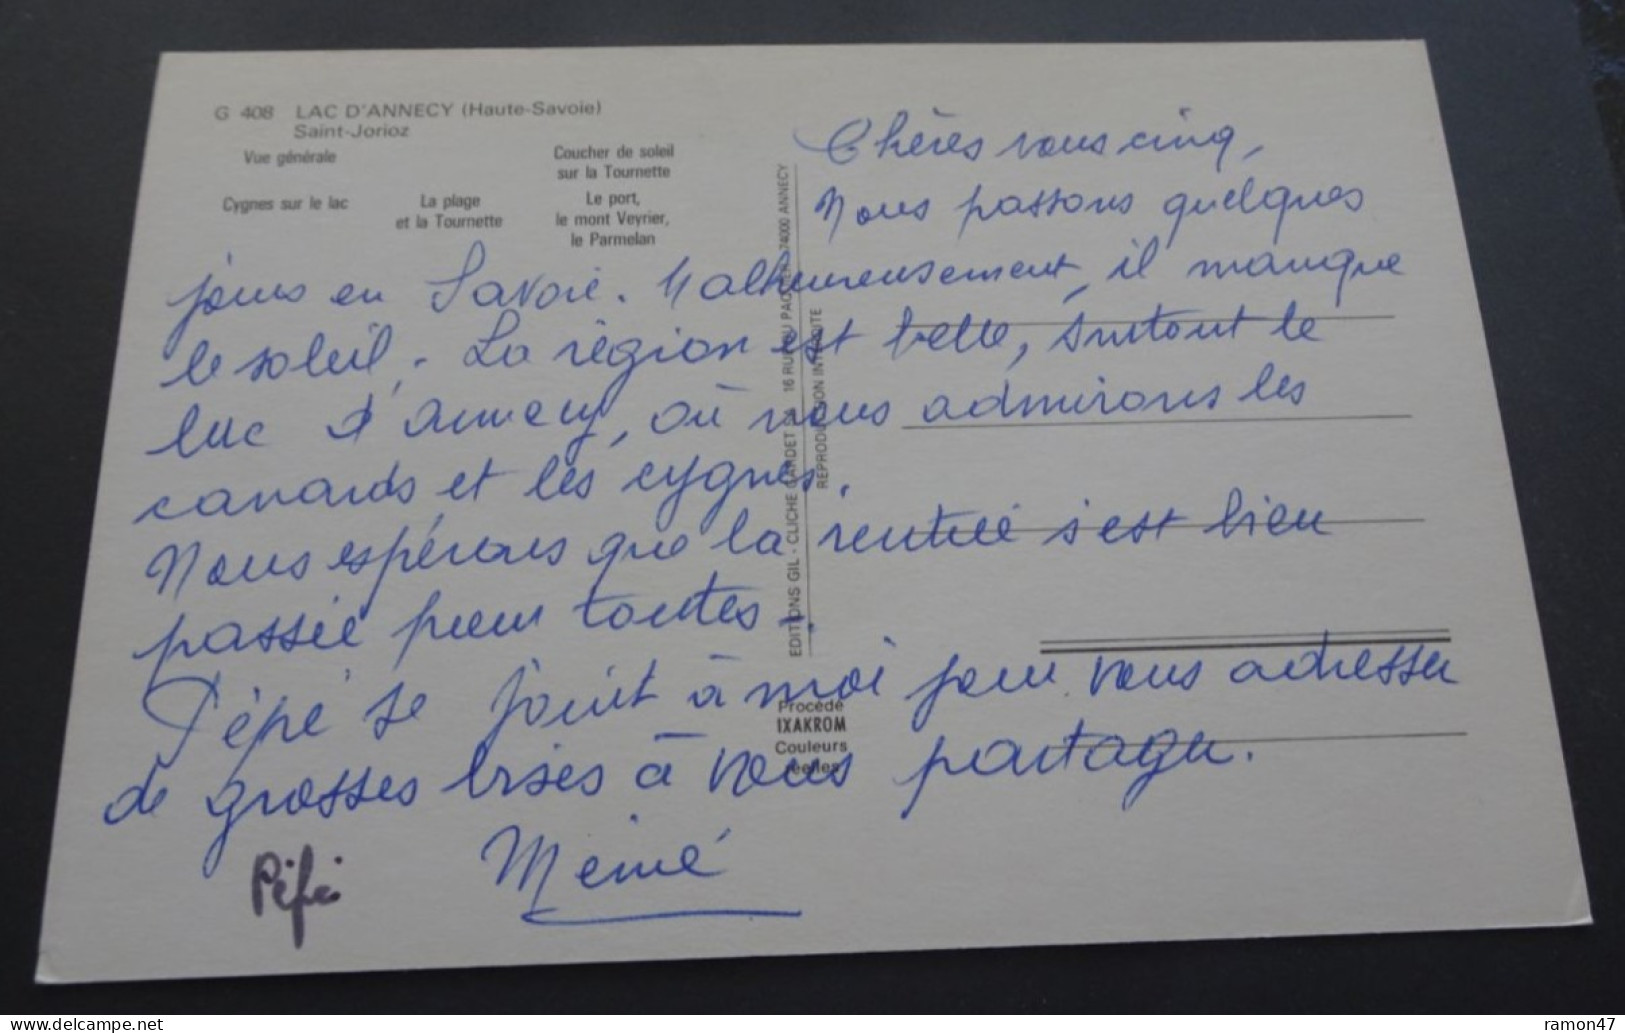 G 408 LAC D'ANNECY (Haute-Savoie)
Saint-Jorioz
Vue générale
Coucher de soleil
sur la Tournette
Cygnes sur le lac
La plage
et la Tournette
Le port,
le mont Veyrier,
le Parmelan
Chères vous cinq,
Nous passons quelques
jours en Savoie. Malheureusement, il manque
le soleil. La région est belle, surtout le
lac d'Annecy, où nous admirons les
canards et les cygnes.
Nous espérons que la rentrée s'est bien
passée pour toutes.
Pépé se joint à moi pour vous adresser
de grosses bises à vous partager.
Pépé
Mémé
EDITIONS GIL - CLICHE GARDET 16 RUE PAQUIER 74000 ANNECY
REPRODUCTION INTERDITE
Procédé
IXAKROM
Couleurs
réelles
ramon47